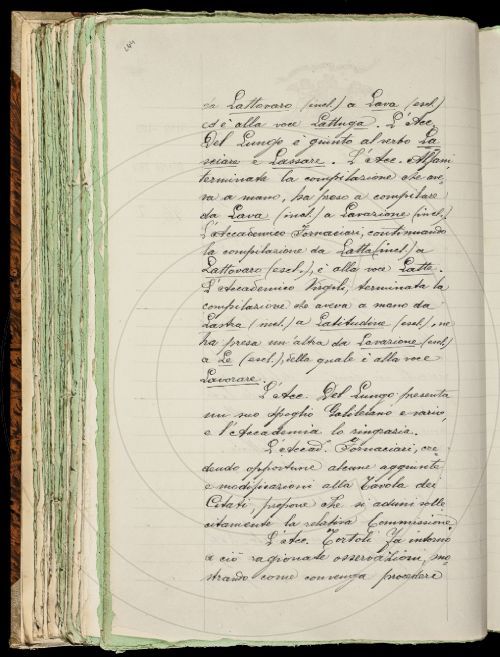 da Lattovaro (incl.) a Lava (escl.)
ed è alla voce Lattuga. L'Acc.
Del Lungo è giunto al verbo La-
sciare e Lassare. L'Acc. Alfani,
terminata la compilazione che ave-
va a mano, ha preso a compilare
da Lava (incl.) a Lavazione (incl.).
L'Accademico Fornaciari, continuando
la compilazione da Latta (incl.) a
Lattovaro (escl.), è alla voce Latte.
L'Accademico Vegili, terminata la
compilazione che aveva a mano da
Lastra (incl.) a Latitudine (escl.), ne
ha presa un'altra da Lavazione (escl.)
a Le (escl.), della quale è alla voce
Lavorare.
L'Acc. Del Lungo presenta
un suo spoglio Galileiano e vario,
e l'Accademia lo ringrazia.
L'Accad. Fornaciari, cre-
dendo opportune alcune aggiunte
e modificazioni alla Tavola dei
Citati, propone che si aduni solle-
citamente la relativa Commissione.
L'Acc. Tortoli fa intorno
a ciò ragionate osservazioni, mo-
strando come convenga procedere